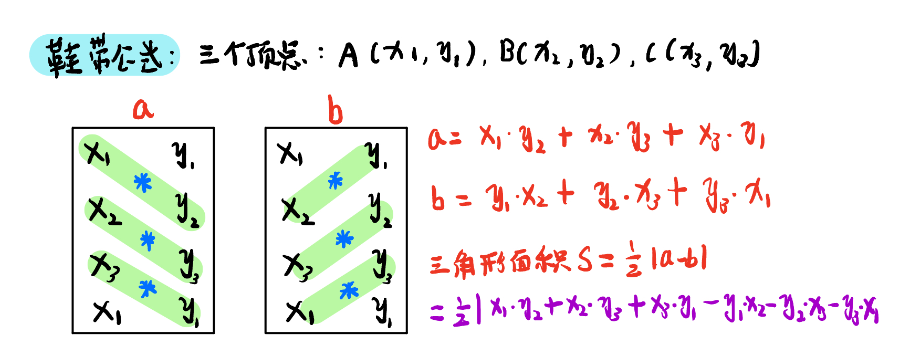 鞋带公式: 三个顶点: A(x₁,y₁), B(x₂,y₂), C(x₃,y₃)
a
x₁ y₁
*
x₂ y₂
*
x₃ y₃
*
x₁ y₁
b
x₁ y₁
*
x₂ y₂
*
x₃ y₃
*
x₁ y₁
a= x₁·y₂ + x₂·y₃ + x₃·y₁
b = y₁·x₂ + y₂·x₃ + y₃·x₁
三角形面积 S = ½ |a-b|
= ½| x₁·y₂+x₂·y₃+x₃·y₁-y₁·x₂-y₂·x₃-y₃·x₁